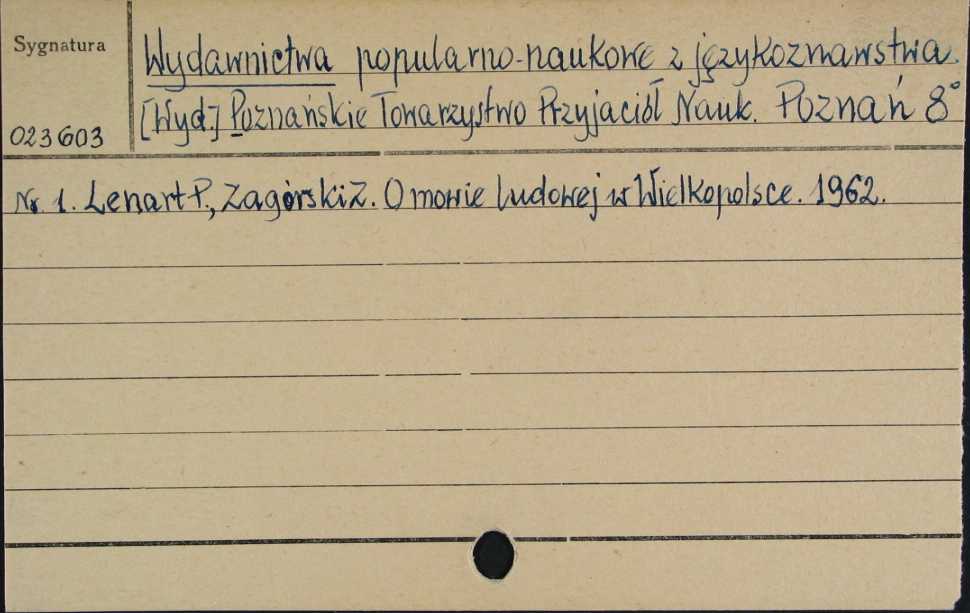 Sygnatura
Wydawnictwa popularno-naukowe z językoznawstwa.
[Wyd.] Poznańskie Towarzystwo Przyjaciół Nauk. Poznań 8°
023603
Nr. 1. Lenart P., Zagórski Z. O mowie ludowej w Wielkopolsce. 1962.